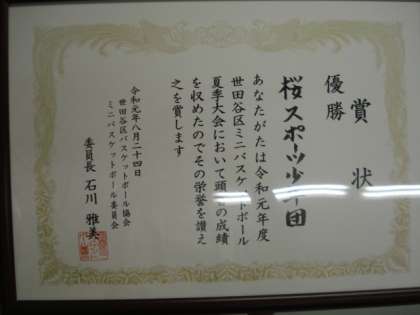 賞状
優勝
桜スポーツ少年団
あなたがたは令和元年度
世田谷区ミニバスケットボール
夏季大会において頭書の成績
を収めたのでその栄誉を讃え
之を賞します
令和元年八月二十四日
世田谷区バスケットボール協会
ミニバスケットボール委員会
委員長 石川 雅美